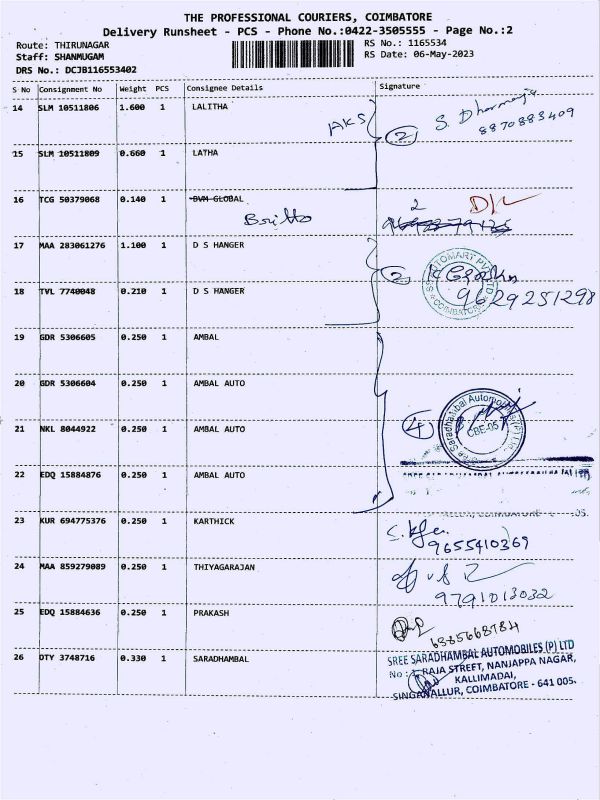 THE PROFESSIONAL COURIERS, COIMBATORE
Delivery Runsheet - PCS - Phone No.:0422-3505555 - Page No.:2
Route: THIRUNAGAR RS No.: 1165534
Staff: SHANMUGAM RS Date: 06-May-2023
DRS No.: DCJB116553402
S No Consignment No Weight PCS Consignee Details Signature
14 SLM 10511806 1.600 1 LALITHA
AKS 2 S. Dharmaraja
8870883409
15 SLM 10511809 0.660 1 LATHA
16 TCG 50379068 0.140 1 BVM GLOBAL
Britto
17 MAA 283061276 1.100 1 D S HANGER
2
9629251298
COIMBATORE
18 TVL 7740048 0.210 1 D S HANGER
19 GDR 5306605 0.250 1 AMBAL
20 GDR 5306604 0.250 1 AMBAL AUTO
21 NKL 8044922 0.250 1 AMBAL AUTO
4
Saradhambal Automobiles
CBE-05
22 EDQ 15884876 0.250 1 AMBAL AUTO
23 KUR 694775376 0.250 1 KARTHICK
9655410369
24 MAA 859279089 0.250 1 THIYAGARAJAN
9791013032
25 EDQ 15884636 0.250 1 PRAKASH
6385668784
26 OTY 3748716 0.330 1 SARADHAMBAL
SREE SARADHAMBAL AUTOMOBILES (P) LTD
No : 1, RAJA STREET, NANJAPPA NAGAR,
KALLIMADAI,
SINGANALLUR, COIMBATORE - 641 005.